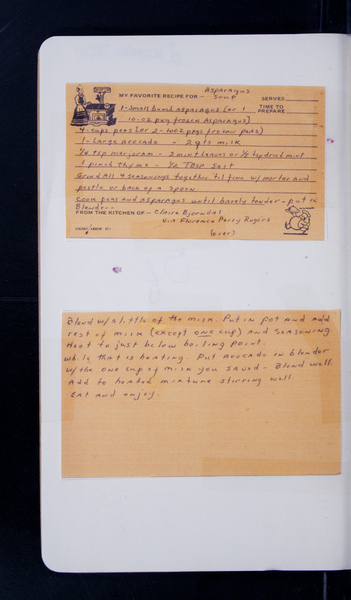 Asparagus
MY FAVORITE RECIPE FOR - Soup SERVES
1 - Small bund asparagus (or 1 TIME TO
10-oz pkg frozen Asparagus) PREPARE
4 - cups peas (or 2 - 10oz pkgs frozen peas)
1 - Large avocado - 2 qts milk
1/2 tsp marjoram - 2 mint leaves or 1/2 tsp dried mint
1 pinch thyme - 1/2 TBSP Salt
Grind all 4 seasonings together til fine w/ mortar and
pestle or back of a spoon
Cook peas and asparagus until barely tender - put in
Blender -
FROM THE KITCHEN OF - Claire Bjorndal
via Florence Perry Rogers
(over)
Blend w/ a little of the milk. Put in pot and add
rest of milk (except one cup) and seasoning.
Heat to just below boiling point.
While that is heating. Put avocado in blender
w/ the one cup of milk you saved - Blend well.
Add to heated mixture stirring well.
Eat and enjoy.